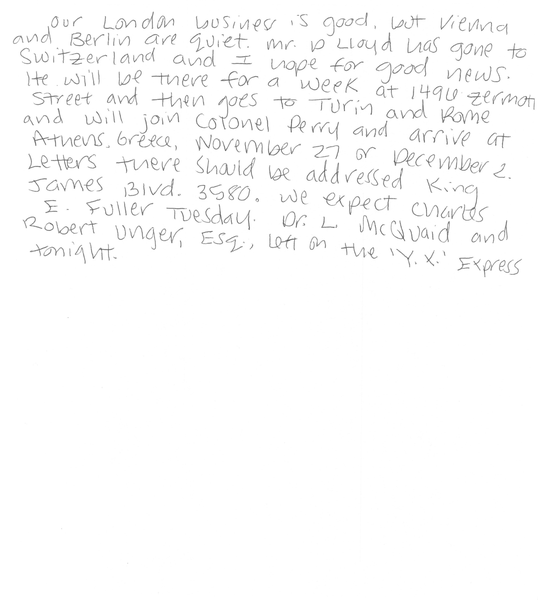 our London business is good, but Vienna
and Berlin are quiet. Mr. D Lloyd has gone to
Switzerland and I hope for good news.
He will be there for a week at 1496 Zermott
Street and then goes to Turin and Rome
and will join Colonel Perry and arrive at
Athens, Greece, November 27 or December 2.
Letters there should be addressed King
James Blvd. 3580. We expect Charles
E. Fuller Tuesday. Dr. L. McQuaid and
Robert Unger, Esq., left on the 'Y.X.' Express
tonight.